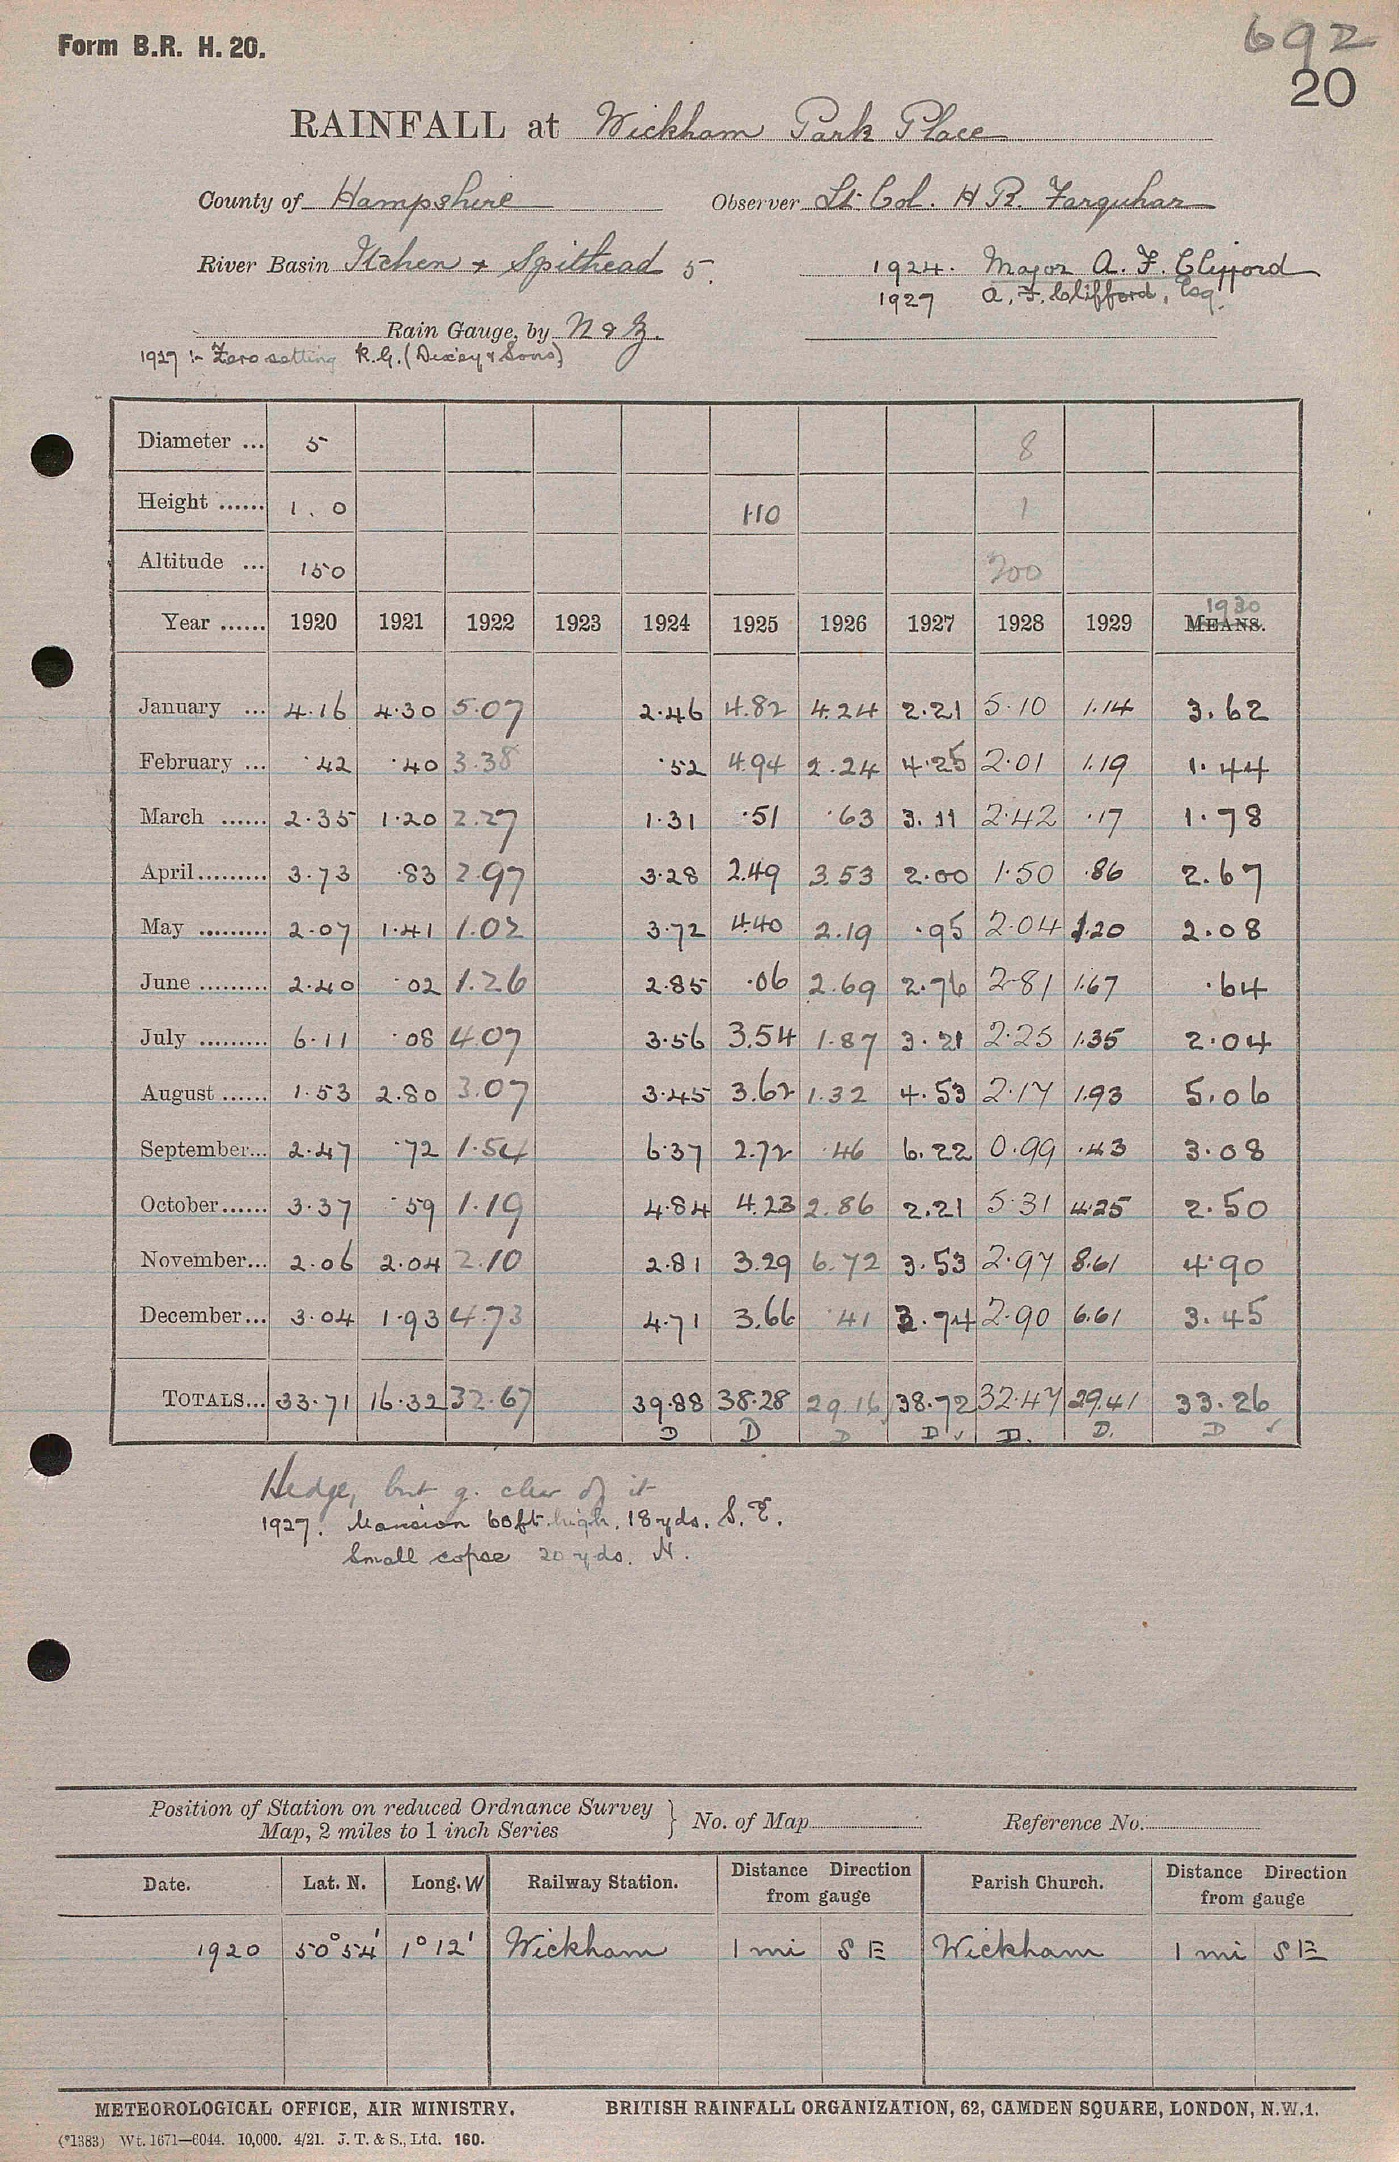 Form B.R. H. 20.
692
20
RAINFALL at Wickham Park Place
County of Hampshire Observer Lt. Col. H R. Farquhar
River Basin Itchen & Spithead 5. 1924. Major A. F. Clifford
1927 A. F. Clifford, Esq.
Rain Gauge, by N & Z.
1927 :- Zero setting R.G. (Dixey & Sons)
Diameter ... 5 8
Height ...... 1. 0 1·10 1
Altitude ... 150 200
1930
Year ...... 1920 1921 1922 1923 1924 1925 1926 1927 1928 1929 MEANS.
January ... 4·16 4·30 5·07 2·46 4.82 4.24 2·21 5·10 1.14 3.62
February ... ·42 ·40 3.38 ·52 4.94 2.24 4·25 2·01 1.19 1.44
March ...... 2·35 1·20 2.27 1·31 ·51 ·63 3.11 2·42 ·17 1·78
April......... 3·73 ·83 2·97 3·28 2.49 3.53 2·00 1·50 ·86 2.67
May ......... 2·07 1·41 1.02 3·72 4.40 2.19 ·95 2·04 1.20 2·08
June ......... 2·40 ·02 1.26 2·85 ·06 2.69 2·76 2·81 1.67 ·64
July ......... 6·11 ·08 4.07 3·56 3.54 1·87 3·21 2·25 1.35 2·04
August ...... 1·53 2·80 3.07 3·45 3.62 1.32 4·53 2·17 1.93 5.06
September... 2·47 ·72 1·54 6·37 2.72 ·46 6.22 0·99 ·43 3·08
October...... 3·37 ·59 1·19 4·84 4.23 2.86 2.21 5·31 4.25 2·50
November... 2·06 2·04 2·10 2·81 3.29 6.72 3·53 2·97 8.61 4·90
December... 3·04 1·93 4.73 4·71 3.66 ·41 3·74 2·90 6.61 3.45
TOTALS... 33·71 16·32 32·67 39·88 38·28 29.16 38·72 32·47 29.41 33.26
D D D D ✓ D. D. D ✓
Hedge, but g. clear of it
1927. Mansion 60ft high, 18 yds. S.E.
Small copse 20 yds. N.
Position of Station on reduced Ordnance Survey
Map, 2 miles to 1 inch Series } No. of Map Reference No.
Date. Lat. N. Long. W Railway Station. Distance Direction from gauge Parish Church. Distance Direction from gauge
1920 50° 54' 1° 12' Wickham 1 mi S E Wickham 1 mi S E
METEOROLOGICAL OFFICE, AIR MINISTRY. BRITISH RAINFALL ORGANIZATION, 62, CAMDEN SQUARE, LONDON, N.W.1.
(*1383) Wt. 1671—6044. 10,000. 4/21. J. T. & S., Ltd. 160.